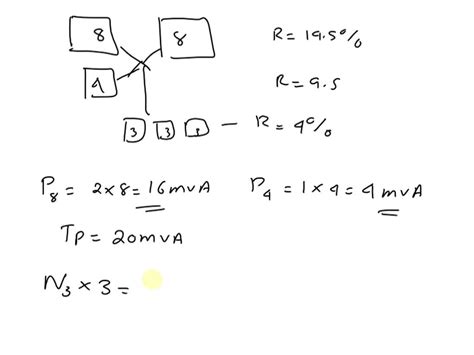 8 8 R = 19.5%
4 R = 9.5
3 3 3 — R = 4%
P8 = 2 x 8 = 16 mvA P4 = 1 x 4 = 4 mvA
TP = 20 mvA
N3 x 3 =